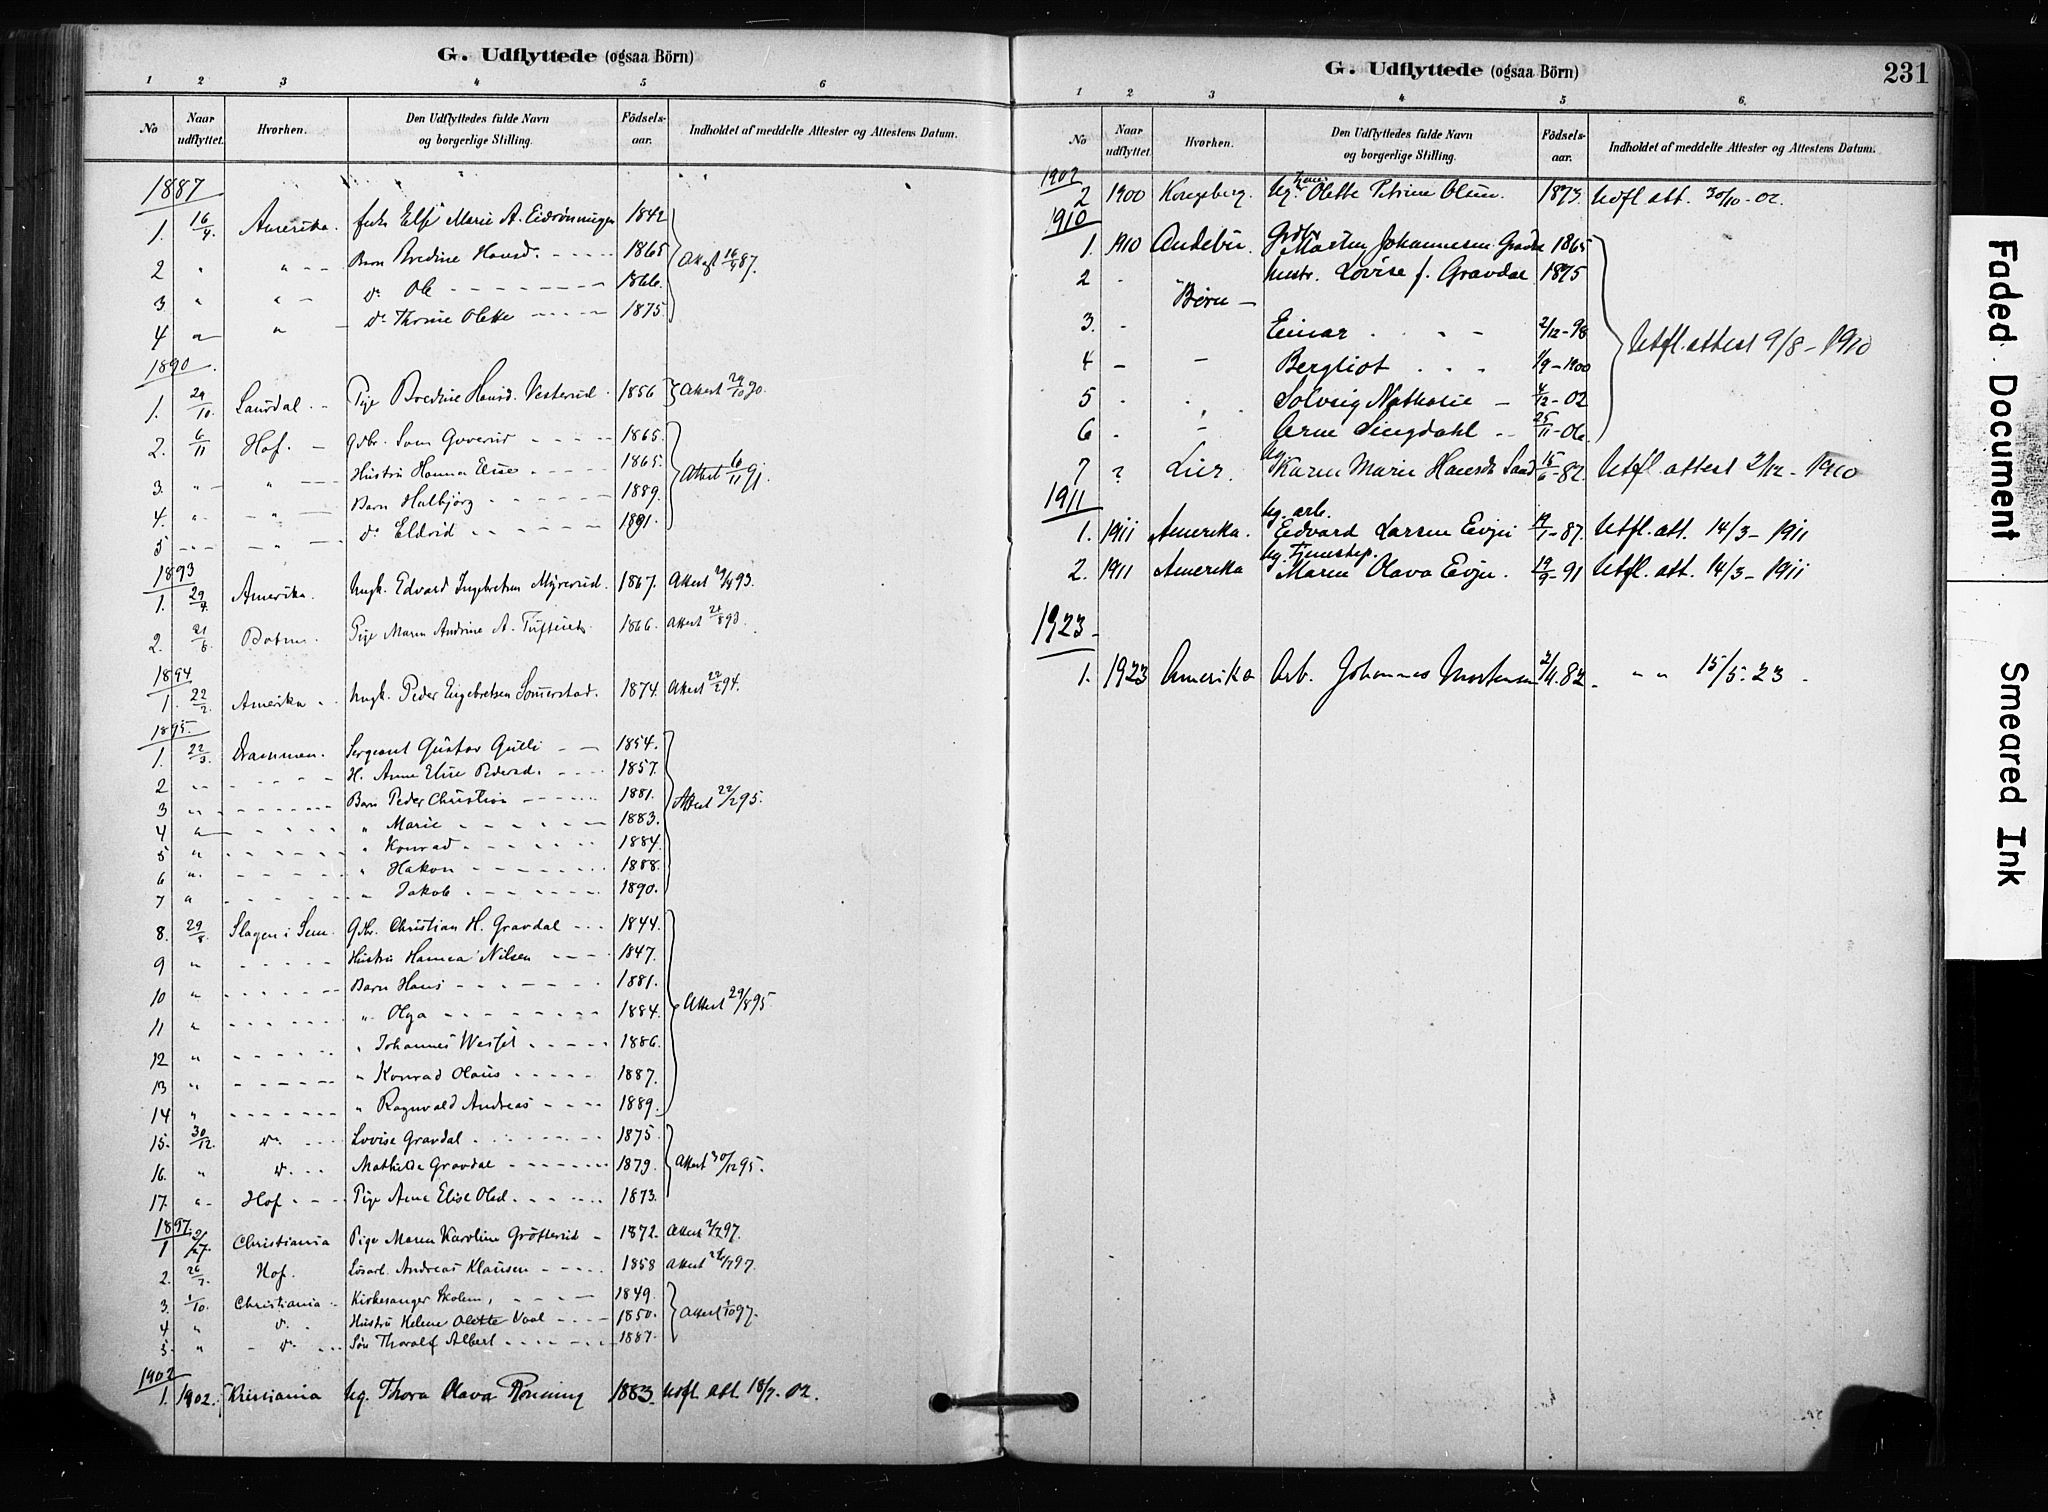 G. Udflyttede (ogsaa Börn)
1 2 3 4 5 6
No Naar udflyttet. Hvorhen. Den Udflyttedes fulde Navn og borgerlige Stilling. Födsels-aar. Indholdet af meddelte Attester og Attestens Datum.
1887
1. 16/4 Amerika. Elise Marie A. Eidsrönningen 1842
2 " " Barn Bredine Hansd. 1865 Attest 16/4 87.
3 " " do Ole 1866.
4 " " do Thrine Olette 1875.
1890.
1. 29/10. Laurdal Pige Bredine Hansd. Vesterud. 1856 Attest 29/10 90.
2. 6/11 Hof. Gdbr. 1865.
3. " " Hustru Hanna Elise 1865. Attest 6/11 91.
4. " " Barn Halbjörg 1889.
5 " " do Eldrid 1891.
1893
1. 29/4. Amerika. Ungk. Edvard Ingebretsen Myrerud. 1867. Attest 29/4 93.
2. 21/6 Botne. Pige Maren Andrine A. 1866. Attest 93.
1894
1. 22/2. Amerika Ungk. Peder Engebretsen Sommerstad. 1874. Attest 22/2 94.
1895.
1. 22/3. Drammen. Sergeant Gustav Gulli 1854.
2 " H. Anne Elise Pedersd. 1857.
3 " Barn Peder Christian 1881. Attest 22/2 95.
4 " " Marie 1883.
5 " " Konrad 1884.
6 " " Hakon 1888.
7 " " Jakob 1890.
8. 29/8. Slagen i Sem. Gdbr. Christian H. Gravdal 1844.
9 " Hustru Hanna Nilsen 1847.
10 " Barn Hans 1881.
11 " " Olga 1884. Attest 29/8 95.
12 " " Johannes Wessel 1886.
13 " " Konrad Olaus 1887.
14 " " Ragnvald Andreas 1889.
15. 30/12. do Lovise Gravdal 1875.
16. " do Mathilde Gravdal 1879. Attest 30/12 95.
17. " Hof. Pige Anne Elise Olsd. 1873.
1897.
1 2/7. Christiania Pige Maren Karoline Grötterud 1872. Attest 2/7 97.
2. 26/7. Hof. Lösarb. Andreas Klausen 1858 Attest 26/7 97.
3. 1/10. Christiania Kirkesanger Skolem, 1849.
4 " do Hustru Helene Olette Vaal 1850. Attest 1/10 97.
5 " do Sön Thoralf Albert 1887.
1902
1. 1902. Kristiania Ug. Thora Olava Rönning 1883. Udfl. att. 18/7. 02.
G. Udflyttede (ogsaa Börn) 231
1 2 3 4 5 6.
No Naar udflyttet Hvorhen. Den Udflyttedes fulde Navn og borgerlige Stilling. Födsels-aar. Indholdet af meddelte Attester og Attestens Datum.
1902
2 1900 Kongsberg. Ug. tjener Olette Petrine Olsen. 1873. Udfl. att. 30/10. 02.
1910
1. 1910 Andebu. Grdbr. Martin Johannesen 1865
2 - hustr. Lovise f. Gravdal 1875
Børn
3. - Einar 2/12-98 Utfl. attest 9/8-1910
4 - Bergliot 1/9-1900
5 - Solveig Nathalie 4/12-02
6 - Arne Lingdahl 25/11-06.
7 ? Lier. Ug. Karen Marie Hansdt. Sand 15/6-82. Utfl. attest 2/12-1910
1911
1. 1911 Amerika. Ug. arb. Edvard Larsen Evju 19/1-87. Utfl. att. 14/3-1911
2. 1911 Amerika Ug. tjenestep. Maren Olava Evju. 19/9-91 Utfl. att. 14/3-1911
1923
1. 1923 Amerika Arb. Johannes Mortensen 2/4.82. " " 15/5.23.
Faded Document
Smeared Ink